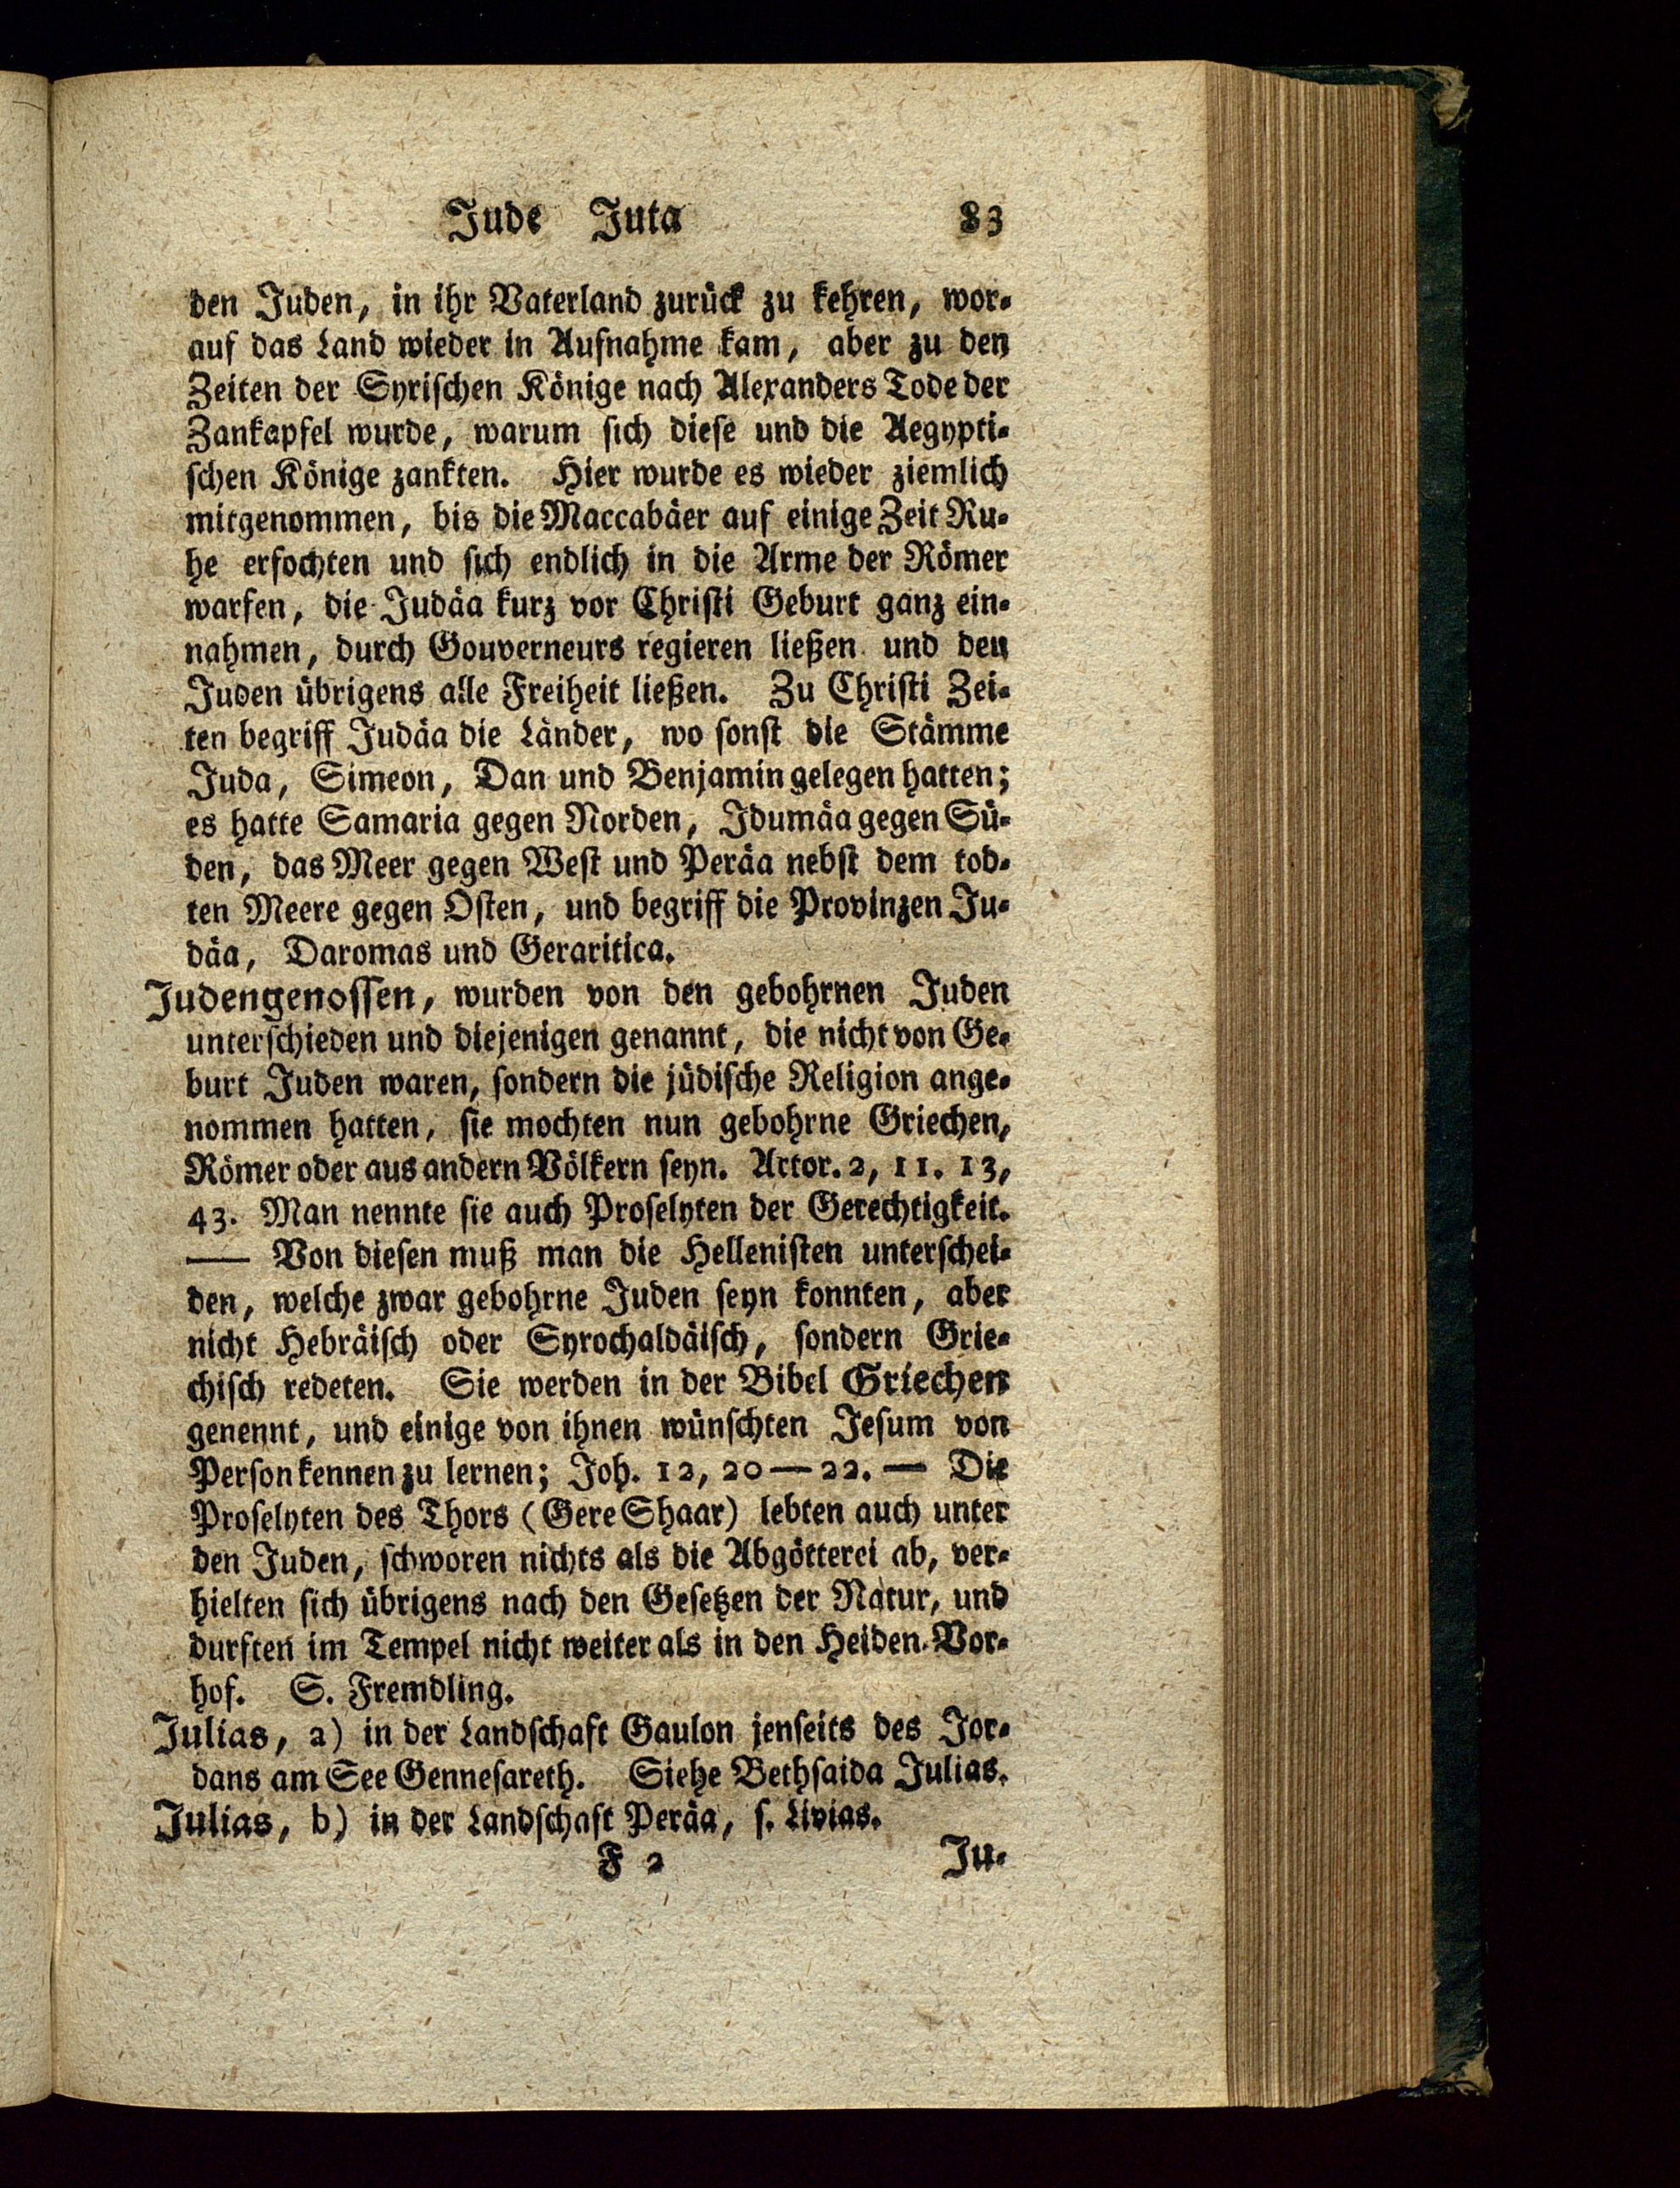 Jude Juta 83
den Juden, in ihr Vaterland zurück zu kehren, wor-
auf das Land wieder in Aufnahme kam, aber zu den
Zeiten der Syrischen Könige nach Alexanders Tode der
Zankapfel wurde, warum sich diese und die Aegypti-
schen Könige zankten. Hier wurde es wieder ziemlich
mitgenommen, bis die Maccabäer auf einige Zeit Ru-
he erfochten und sich endlich in die Arme der Römer
warfen, die Judäa kurz vor Christi Geburt ganz ein-
nahmen, durch Gouverneurs regieren ließen und den
Juden übrigens alle Freiheit ließen. Zu Christi Zei-
ten begriff Judäa die Länder, wo sonst die Stämme
Juda, Simeon, Dan und Benjamin gelegen hatten;
es hatte Samaria gegen Norden, Idumäa gegen Sü-
den, das Meer gegen West und Peräa nebst dem tod-
ten Meere gegen Osten, und begriff die Provinzen Ju-
däa, Daromas und Geraritica.
Judengenossen, wurden von den gebohrnen Juden
unterschieden und diejenigen genannt, die nicht von Ge-
burt Juden waren, sondern die jüdische Religion ange-
nommen hatten, sie mochten nun gebohrne Griechen,
Römer oder aus andern Völkern seyn. Actor. 2, 11. 13,
43. Man nennte sie auch Proselyten der Gerechtigkeit.
— Von diesen muß man die Hellenisten unterschei-
den, welche zwar gebohrne Juden seyn konnten, aber
nicht Hebräisch oder Syrochaldäisch, sondern Grie-
chisch redeten. Sie werden in der Bibel Griechen
genennt, und einige von ihnen wünschten Jesum von
Person kennen zu lernen; Joh. 12, 20—22. — Die
Proselyten des Thors (Gere Shaar) lebten auch unter
den Juden, schworen nichts als die Abgötterei ab, ver-
hielten sich übrigens nach den Gesetzen der Natur, und
durften im Tempel nicht weiter als in den Heiden-Vor-
hof. S. Fremdling.
Julias, a) in der Landschaft Gaulon jenseits des Jor-
dans am See Gennesareth. Siehe Bethsaida Julias.
Julias, b) in der Landschaft Peräa, s. Livias.
F 2 Ju-